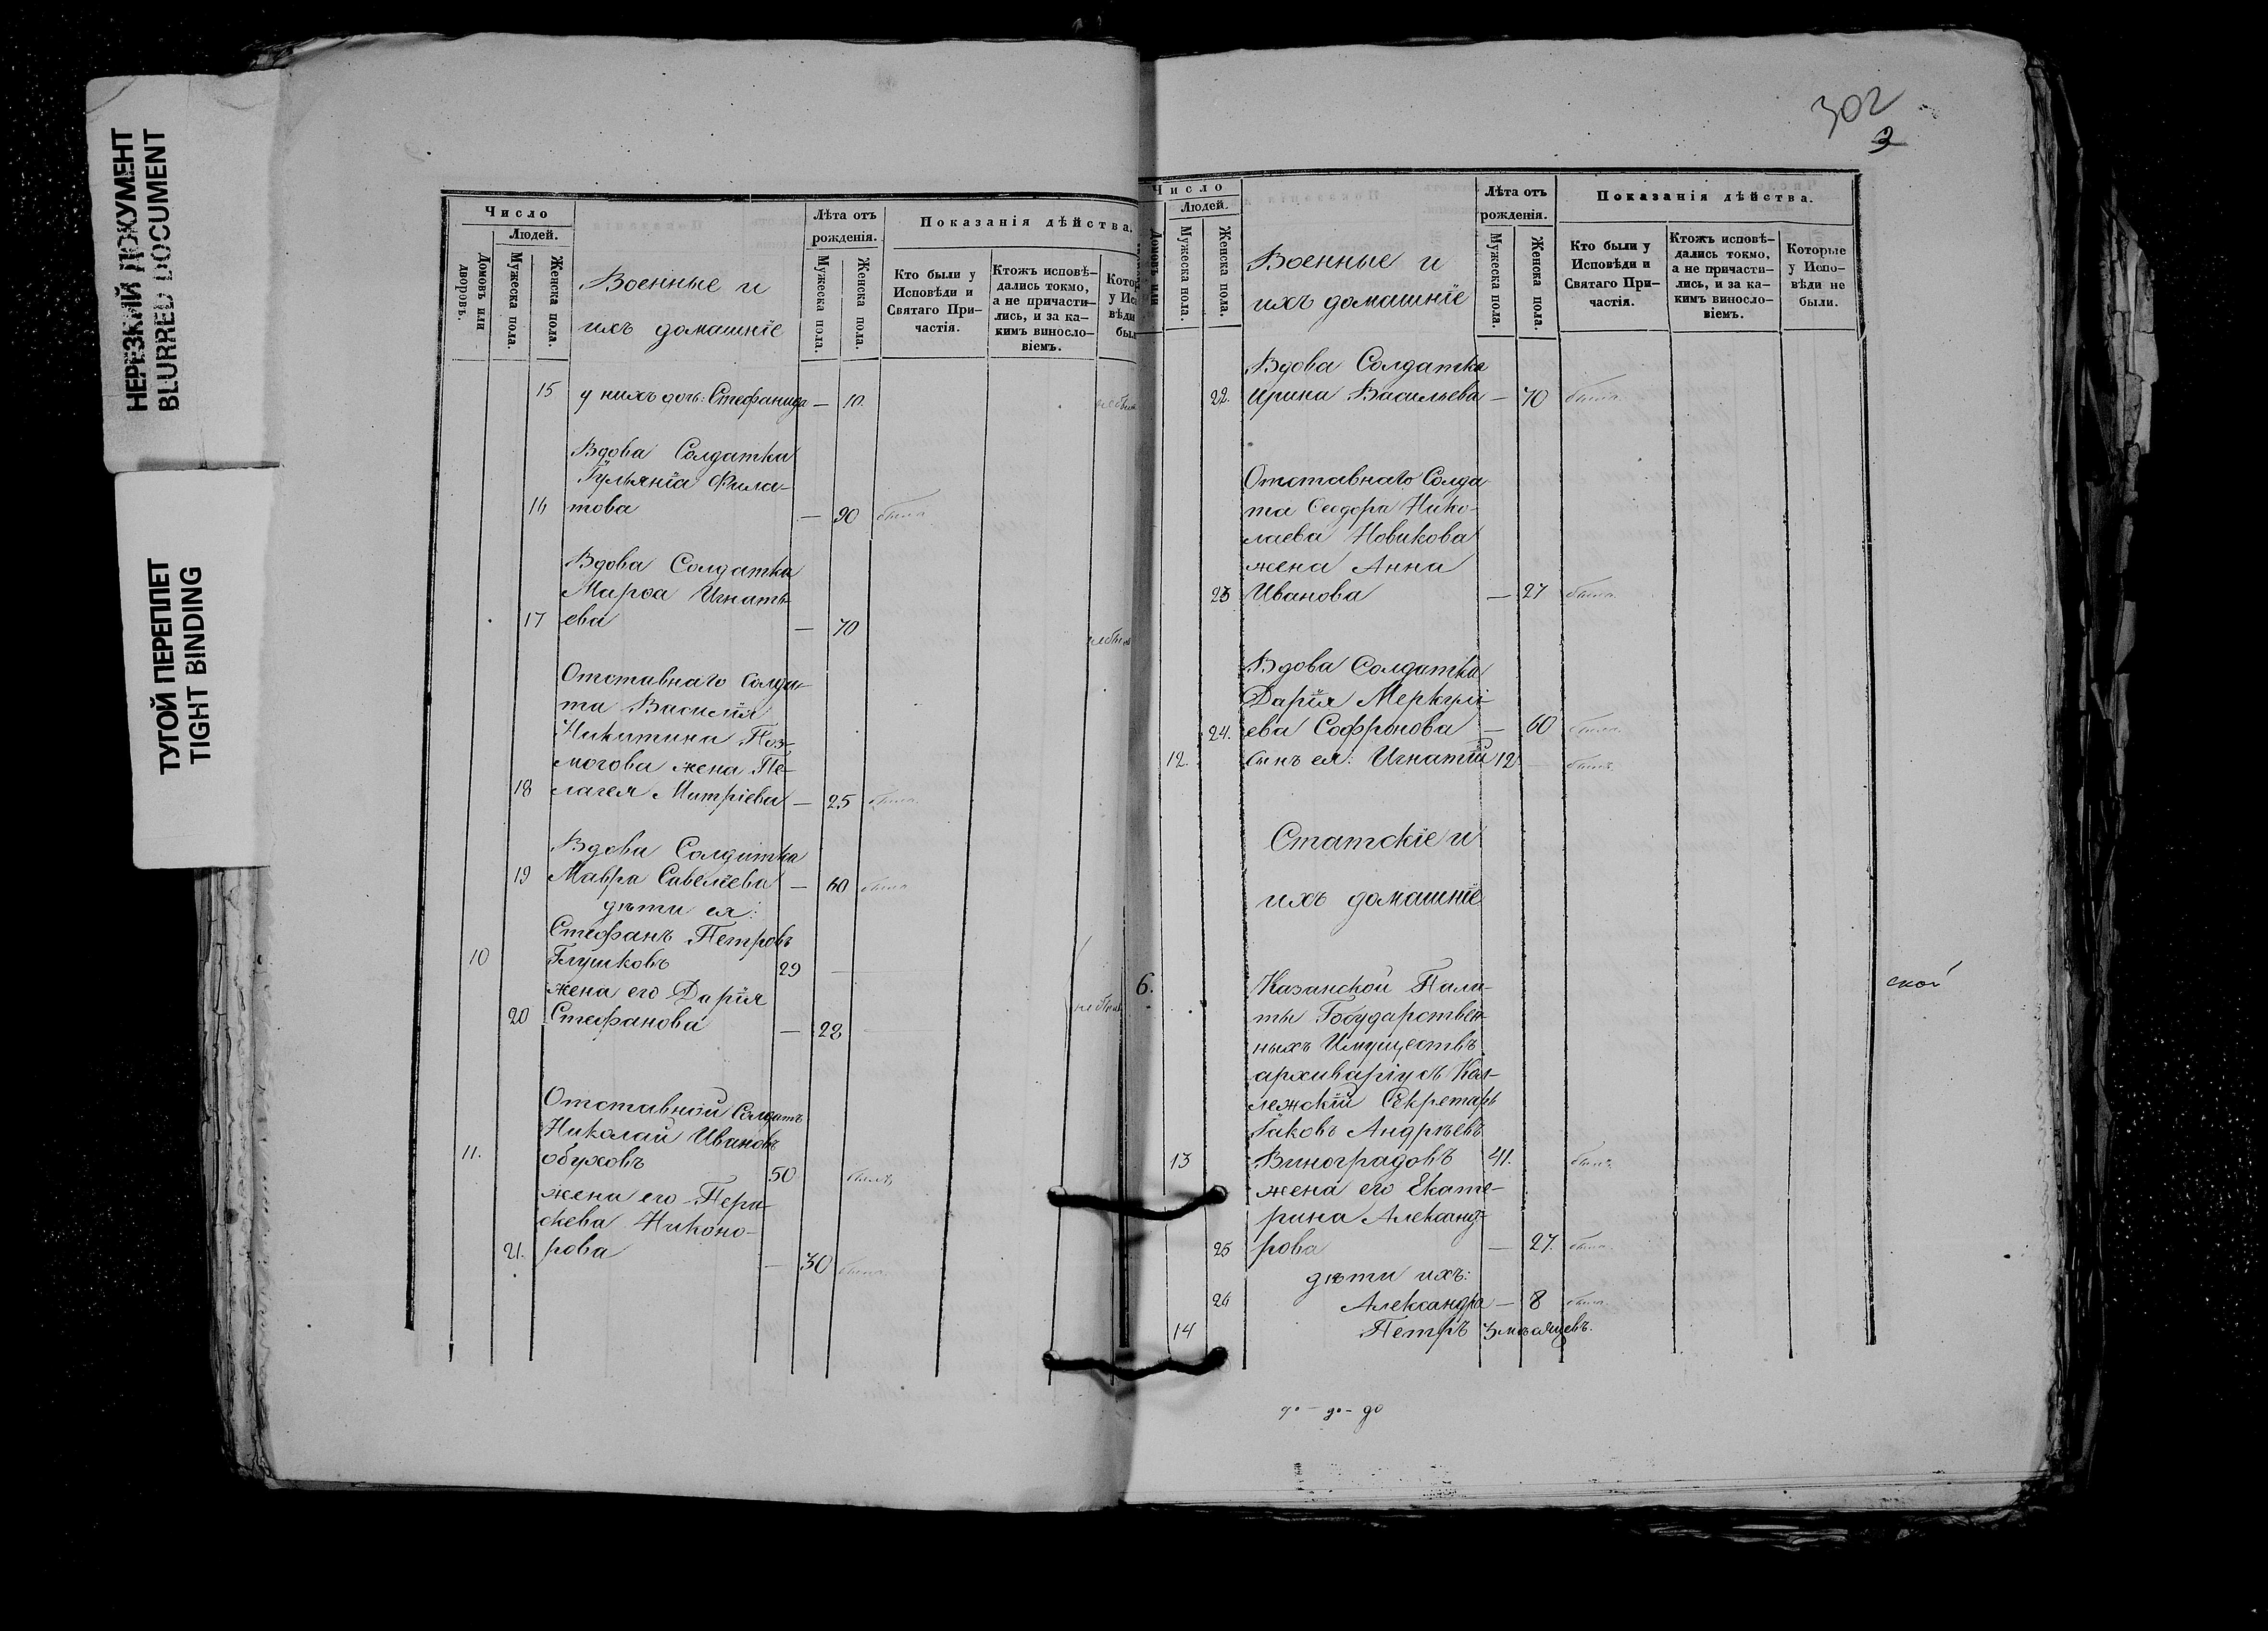 НЕРЕЗКИЙ ДОКУМЕНТ
BLURRED DOCUMENT
ТУГОЙ ПЕРЕПЛЕТ
TIGHT BINDING
Число
Людей.
Домовъ или дворовъ.
Мужеска пола.
Женска пола.
Военные и
ихъ домашніе
Лѣта отъ
рожденія.
Мужеска пола.
Женска пола.
Показанія дѣйства.
Кто были у
Исповѣди и
Святаго При-
частія.
Ктожъ исповѣ-
дались токмо,
а не причасти-
лись, и за ка-
кимъ винословіемъ.
15 у нихъ дочь: Стефанида — 10.
Вдова Солдатка
Іуліанія Фила-
16 това — 90 была
Вдова Солдатка
Марѳа Игнать-
17 ева — 70
Отставнаго Солда-
та Василія
Никитина
могова жена Пе-
18 лагея Митріева — 25 была.
Вдова Солдатка
19 Мавра Савелѣева — 60 была
дѣти ея:
Стефанъ Петровъ
10 Глушковъ 29 —
жена его Дарія
20 Стефанова — 28
Отставной Солдатъ
Николай Ивановъ
11. Обуховъ 50 былъ
жена его Пера-
скева Никоно-
21. рова — 30 была.
302
3
Число
Людей.
Домовъ или
Мужеска пола.
Женска пола.
Военные и
ихъ домашніе
Лѣта отъ
рожденія.
Мужеска пола.
Женска пола.
Показанія дѣйства.
Кто были у
Исповѣди и
Святаго При-
частія.
Ктожъ исповѣ-
дались токмо,
а не причасти-
лись, и за ка-
кимъ виносло-
віемъ.
Которые
у Испо-
вѣди не
были.
Вдова Солдатка
22. Ирина Васильева — 70 была.
Отставнаго Солда
та Ѳеодора Нико-
лаева Новикова
жена Анна
23 Иванова — 27 была.
Вдова Солдатка
Дарія Меркулі-
24. ева Софронова — 60 была.
12. сынъ ея: Игнатій 12 — былъ.
Статскіе и
ихъ домашніе
6. Казанской Пала-
ты Государствен-
ныхъ Имуществъ
архиваріусъ Кол-
лежскій Секретарь
Іаковъ Андрѣевъ
13 Виноградовъ 41. былъ.
жена его Екате-
рина Александ-
25 рова — 27. была.
дѣти ихъ:
26 Александра — 8 была.
14 Петръ 3 мѣсяцевъ.
ской
до - до - до